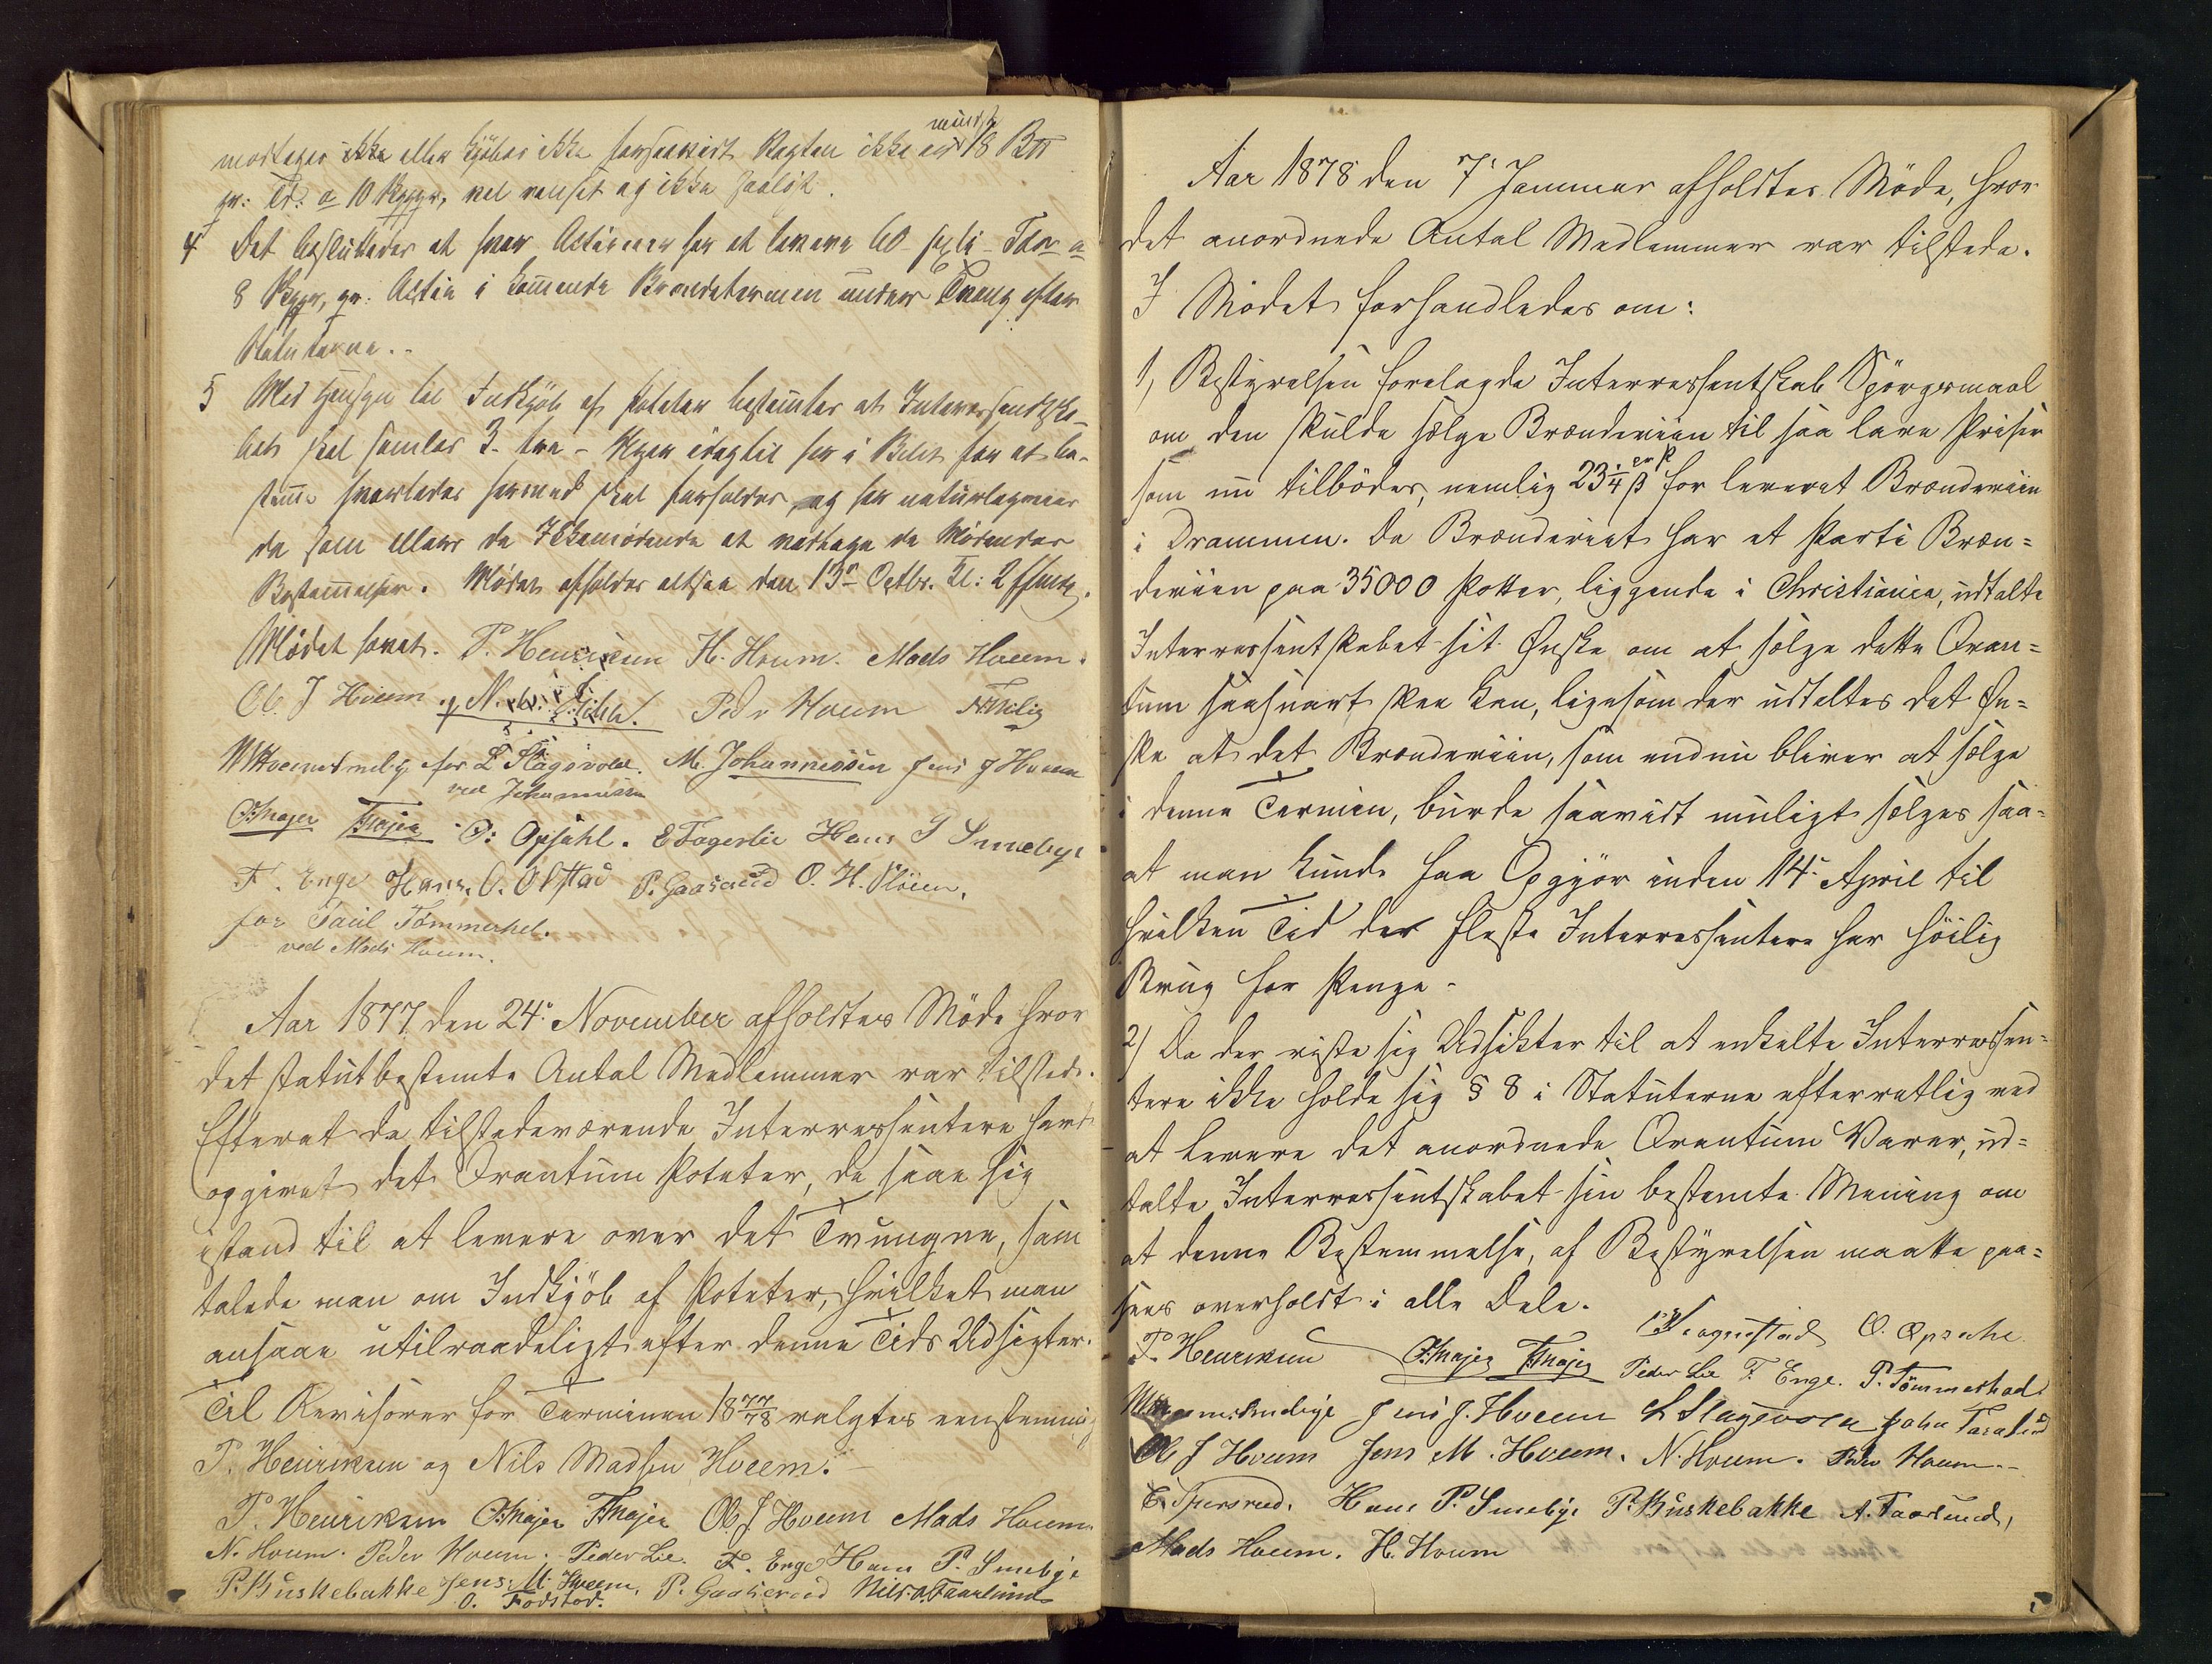 mindst
modtages ikke eller kjøbes ikke forsaavidt Vægten ikke er 18 B℔
pr: Td: a 10 Skppr, vel renset og ikke
4 Det besluttedes at hver Actieeier har at levere 60 - Tdr a
8 Skppr, pr: Actie i kommende Brændetermin under Tvang efter
Statuterne.
5 Med Hensyn til Indkjøb af Poteter bestemtes at Interessentska-
bet skal samles 3 - tre - Uger for at be-
stemme hvorledes hermed skal forholdes, og har naturligviis
da som ellers de Ikkemødende at vedtage de Mødendes
Bestemmelser. Mødet afholdes altsaa den 13de Octbr. Kl: 2 Efterm.
Mødet hævet. P. Henriksen H. Hveem. Mads Hveem.
Ol. J Hveem. N. Peder Hveem
for L Slagsvold. M. Johannessen Jens J Hveem
ved Johannessen
O. Opsahl. E Fagerlie Hans P Smebye
F. Enge Hans. O. Olstad P. Gaaserud O. H. Sloien.
for Paul Tømmerhol.
ved Mads Hveem.
Aar 1877 den 24de November afholdtes Møde hvor
det statutbestemte Antal Medlemmer var tilstede.
Efterat de tilstedeværende Interressentere havde
opgivet det Qvantum Poteter, de saae sig
istand til at levere over det Tvungne, sam
talede man om Indkjøb af Poteter, hvilket man
ansaae utilraadeligt efter denne Tids Udsigter.
Til Revisorer for Terminen 18 77/78 valgtes eenstemmig
P. Henriksen og Nils Madsen Hveem. -
P. Henriksen Ol J Hveem Mads Hveem
N. Hveem. Peder Hveem. Peder Lie. F. Enge Hans P. Smebye
P. Buskebakke Jens. M. Hveem, P. Gaaserud Nils. O. Faarlund
O. Fodstad.
Aar 1878 den 7de Januar afholdtes Møde, hvor
det anordnede Antal Medlemmer var tilstede.
I Mødet forhandledes om:
1, Bestyrelsen forelagde Interressentskab Spørgsmaal
om den skulde sælge Brændeviin til saa lave Priser
pr P
som nu tilbødes, nemlig 23 1/4 ß for leveret Brændeviin
i Drammen. Da Brænderiet har et Parti Bræn=
deviin paa 35000 Potter, liggende i Christiania, udtalte
Interressentskabet sit Ønske om at sælge dette Qvan=
tum saasnart skee kan, ligesom der udtaltes det Øn=
ske at det Brændeviin, som endnu bliver at sælge
i denne Termin, burde saavidt muligt sælges saa=
at man kunde faa Opgjør inden 14de April til
hvilken Tid der fleste Interressentere har høilig
Brug for Penge -
2) Da der viste sig Udsikter til at enkelte Interressen=
tere ikke holde sig § 8 i Statuterne efterretlig ved
at levere det anordnede Qvantum Varer, ud=
talte Interressentskabet sin bestemte Mening om
at denne Bestemmelse, af Bestyrelsen maatte paa=
sees overholdt i alle Dele.
O. Opsahl
P. Henriksen Peder Lie F. Enge. P. Tømmerhol.
Jens J. Hveem L Slagsvold John Faarlund
Ol J Hveem Jens M. Hveem. N. Hveem. Peder Hveem -
Hans P. Smebye P. Buskebakke A. Faarlund,
Mads Hveem. H. Hveem